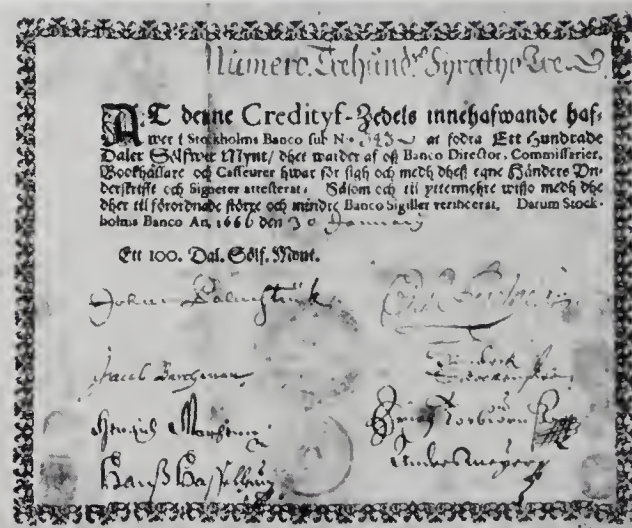 Numero. Trehund. Fyratye Tre
AT denne Credityf-Zedels innehafwande haf-
wer i Stockholms Banco sub N.° 343 at fodra Ett Hundrade
Daler Sölfwer Mynt/ dhet warder af oß Banco Director, Commissarier,
Bookhållare och Casseurer hwar för sigh och medh dheß egne Händers Un-
derskrifft och Signeter attesterat. Såsom och til yttermehre wisso medh dhe
dher til förordnade större och mindre Banco Sigiller verificerat. Datum Stock-
holms Banco An. 1666 den 30 January
Ett 100. Dal. Sölf. Mynt.
Johan Palmstruk
Jacob
Hinrich
Erich Torbiörn
Hanß
Anders Meyer